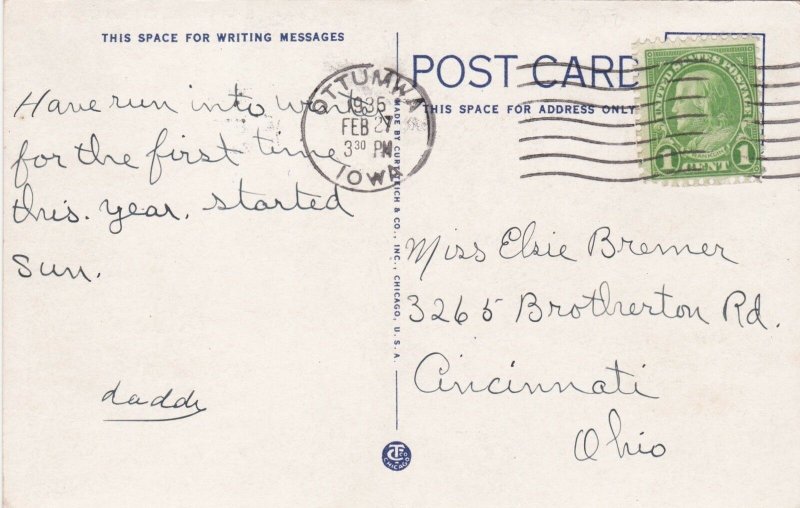 THIS SPACE FOR WRITING MESSAGES
Have run into
for the first time
this. year. started
sun.
daddy
OTTUMWA
1935
FEB 27
3 30 PM
IOWA
MADE BY CURT TEICH & CO., INC., CHICAGO, U.S.A.
POST CARD
THIS SPACE FOR ADDRESS ONLY
UNITED STATES POSTAGE
FRANKLIN
1 CENT 1
Miss Elsie Bremer
3265 Brotherton Rd.
Cincinnati
Ohio
CHICAGO